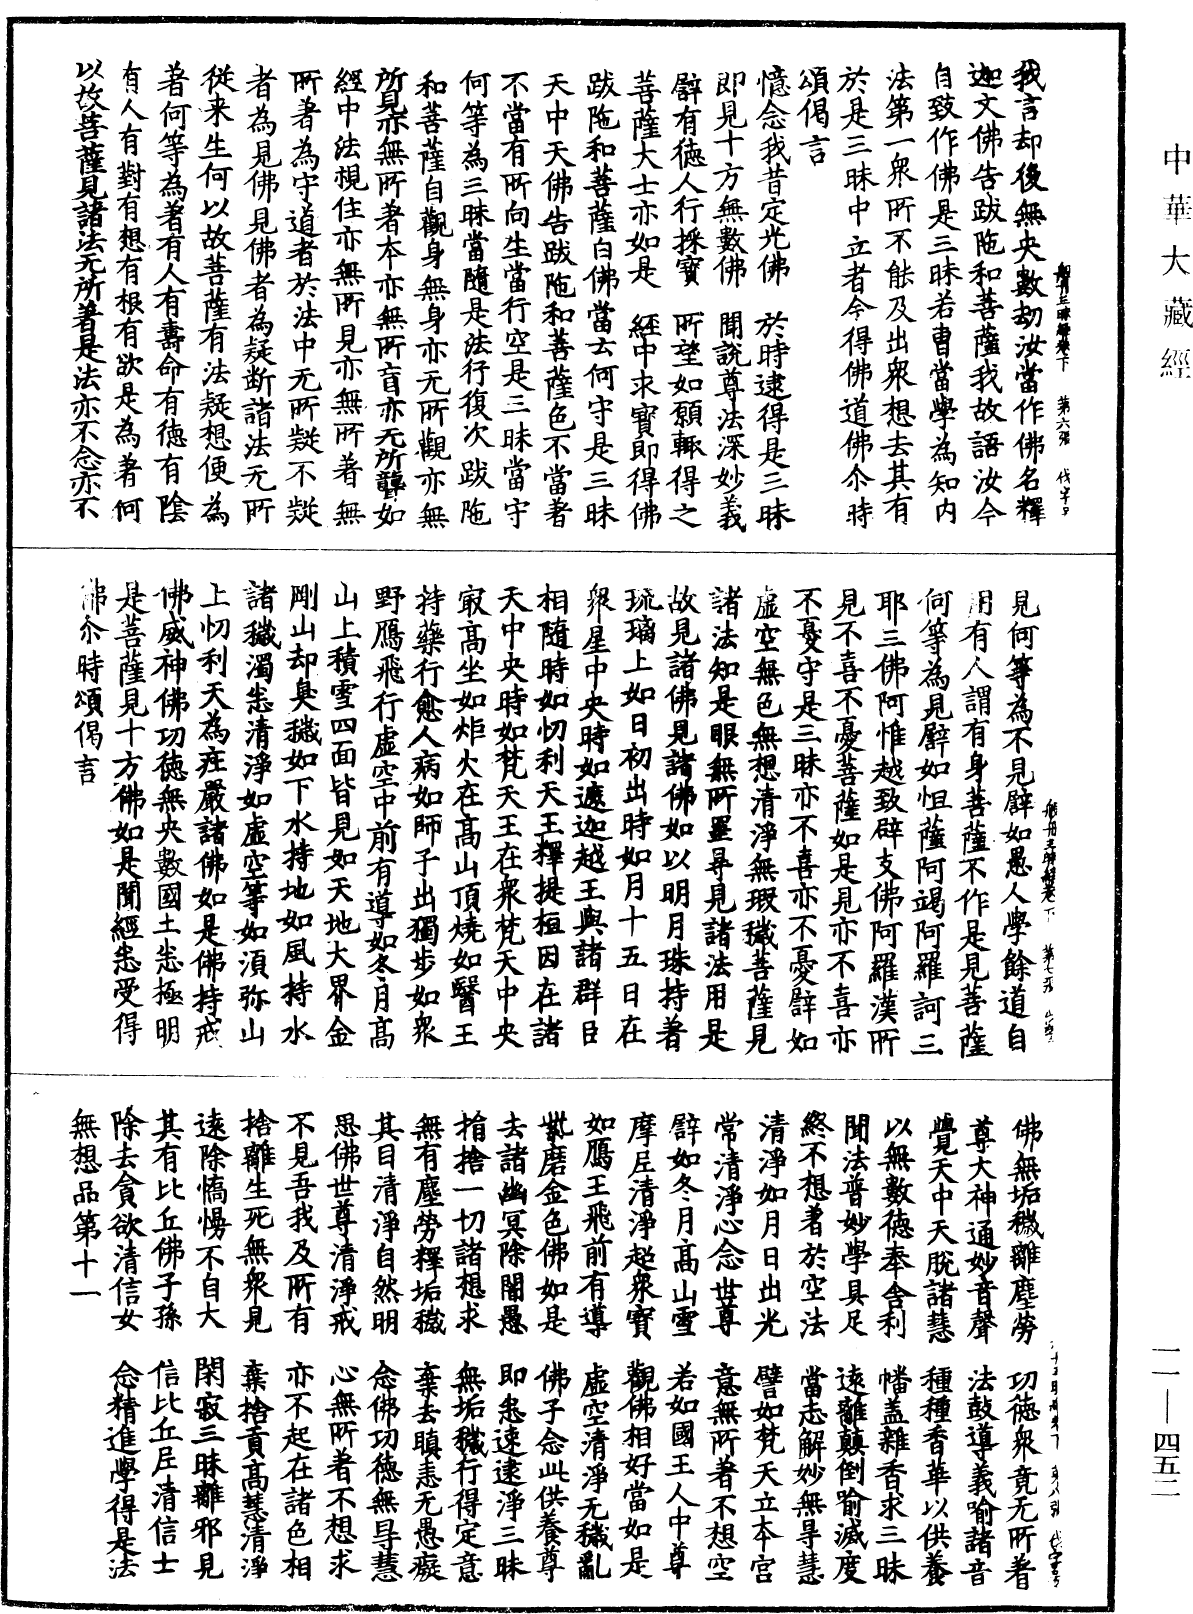 中華大藏經
般舟三昧經卷下 第六張 伐字号
我言却後無央數劫汝當作佛名釋
迦文佛告跋陁和菩薩我故語汝今
自致作佛是三昧若曹當學為知内
法第一衆所不能及出衆想去其有
於是三昧中立者今得佛道佛尒時
頌偈言
憶念我昔定光佛 於時逮得是三昧
即見十方無數佛 聞說尊法深妙義
譬有徳人行採寶 所望如願輙得之
菩薩大士亦如是 經中求寳即得佛
跋陁和菩薩白佛當云何守是三昧
天中天佛告跋陁和菩薩色不當著
不當有所向生當行空是三昧當守
何等為三昧當隨是法行復次跋陁
和菩薩自觀身無身亦无所觀亦無
所見亦無所著本亦無所盲亦无所聾如
經中法視住亦無所見亦無所著無
所著為守道者於法中无所疑不疑
者為見佛見佛者為疑断諸法无所
從来生何以故菩薩有法疑想便為
著何等為著有人有壽命有徳有陰
有人有對有想有根有欲是為著何
以故菩薩見諸法无所著是法亦不念亦不
般舟三昧經卷下 第七張
見何等為不見譬如愚人學餘道自
用有人謂有身菩薩不作是見菩薩
何等為見譬如怛薩阿竭阿羅訶三
耶三佛阿惟越致辟支佛阿羅漢所
見不喜不憂菩薩如是見亦不喜亦
不憂守是三昧亦不喜亦不憂譬如
虛空無色無想清淨無瑕穢菩薩見
諸法如是眼無所罣㝵見諸法用是
故見諸佛見諸佛如以明月珠持著
琉璃上如日初出時如月十五日在
衆星中央時如遮迦越王與諸群臣
相隨時如忉利天王釋提桓因在諸
天中央時如梵天王在衆梵天中央
㝡高坐如炬火在高山頂燒如醫王
持藥行愈人病如師子出獨步如衆
野鴈飛行虛空中前有導如冬月高
山上積雪四面皆見如天地大界金
剛山却臭穢如下水持地如風持水
諸穢濁悉清淨如虛空等如湏弥山
上忉利天為庄嚴諸佛如是佛持戒
佛威神佛功徳無央數國土悉極明
是菩薩見十方佛如是聞經悉受得
佛尒時頌偈言
佛無垢穢離塵勞 功徳衆竟无所著
尊大神通妙音聲 法鼓導義喻諸音
覺天中天脫諸慧 種種香華以供養
以無數徳奉舎利 幡盖雜香求三昧
聞法普妙學具足 遠離顛倒喻滅度
終不想著於空法 當志解妙無㝵慧
清淨如月日出光 譬如梵天立本宫
常清淨心念世尊 意無所著不想空
譬如冬月高山雪 若如國王人中尊
摩尼清淨超衆寳 觀佛相好當如是
如鴈王飛前有導 虛空清淨无穢亂
紫磨金色佛如是 佛子念此供養尊
去諸幽冥除闇愚 即悉速逮淨三昧
揃捨一切諸想求 無垢穢行得定意
無有塵勞釋垢穢 棄去瞋恚无愚癡
其目清淨自然明 念佛功徳無㝵慧
思佛世尊清淨戒 心無所著不想求
不見吾我及所有 亦不起在諸色相
捨離生死無衆見 棄捨貢高慧清淨
遠除憍慢不自大 閑寂三昧離邪見
其有比丘佛子孫 信比丘尼清信士
除去貪欲清信女 念精進學得是法
無想品第十一
一一—四五二